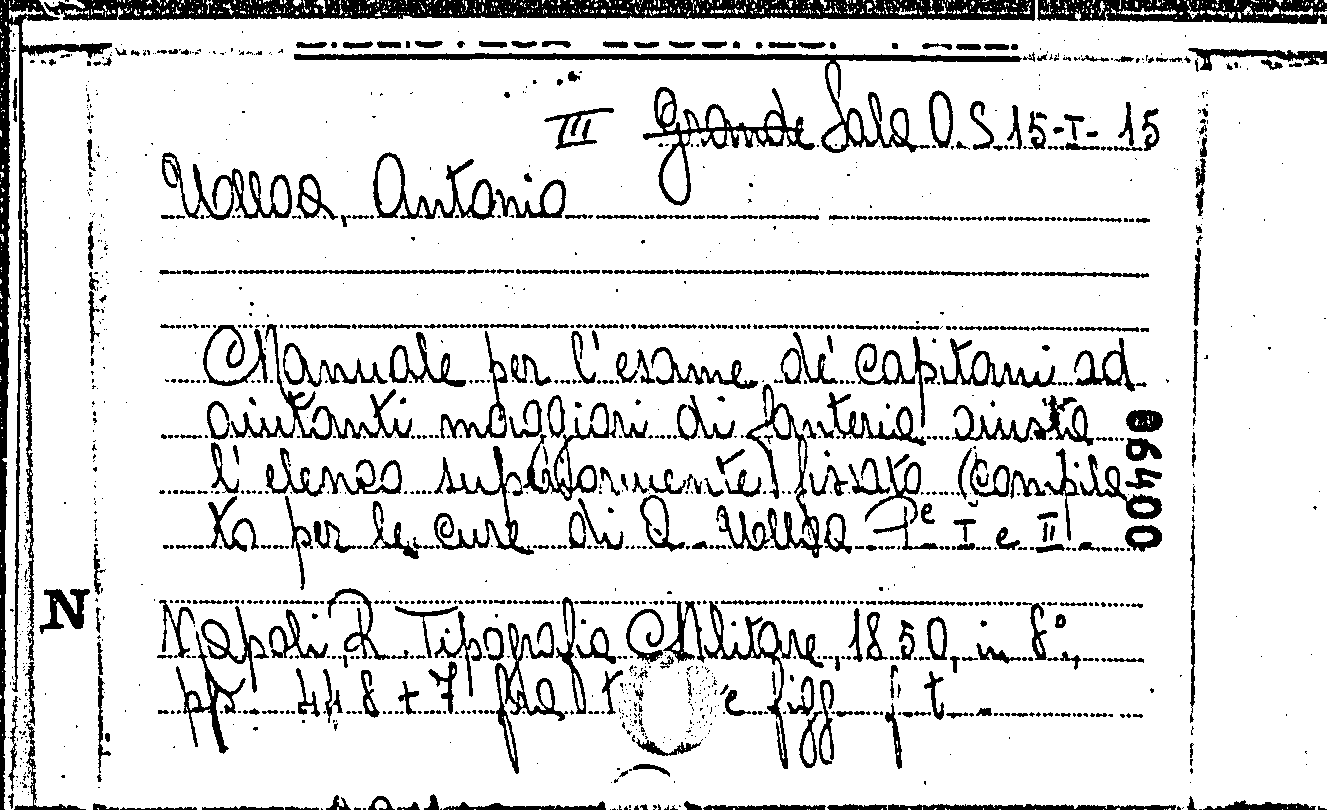 III Grande Sala O.S. 15-I-15
Ulloa, Antonio
Manuale per l'esame de' capitani ad
aiutanti maggiori di fanteria giusta
l'elenco superiormente fissato (compila
to per le cure di A. Ulloa P.e I e II.
00490
N
Napoli, R. Tipografia Militare, 1850, in 8°,
pp. 448 + 7 e figg. f. t. -